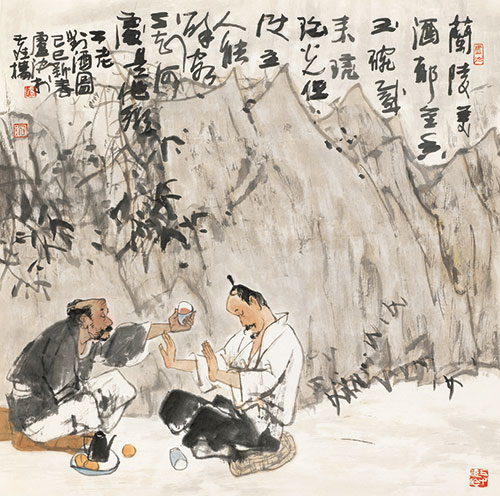 蘭陵美
酒郁金香
玉碗盛
来琥
珀光但
使主
人能
醉客
不知何
處是他鄉
二老
對酒圖
己巳新春
盧沉